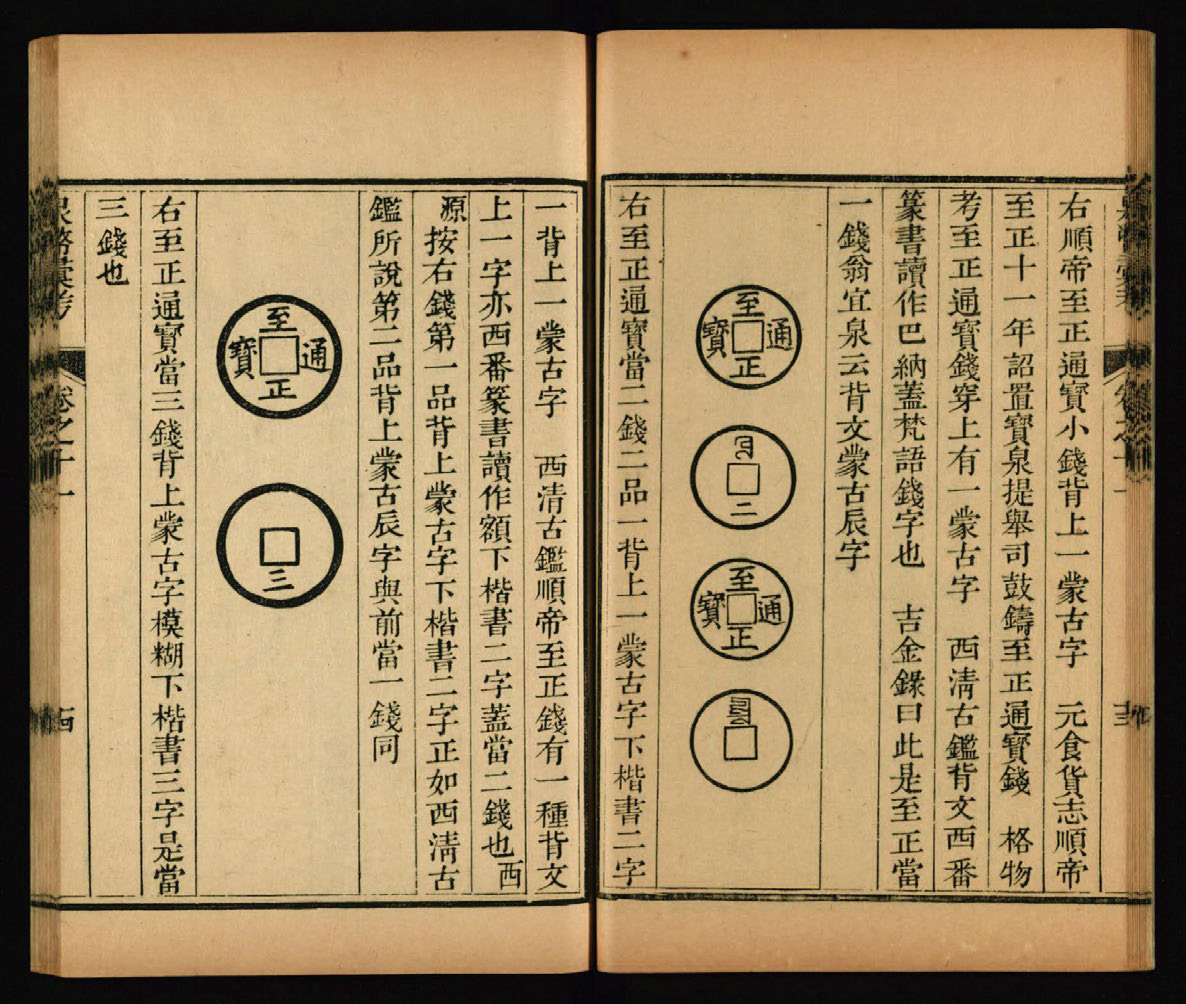 右順帝至正通寶小錢背上一蒙古字　元食貨志順帝
至正十一年詔置寶泉提舉司鼓鑄至正通寶錢　格物
考至正通寶錢穿上有一蒙古字　西淸古鑑背文西番
篆書讀作巴納蓋梵語錢字也　吉金錄曰此是至正當
一錢翁宜泉云背文蒙古辰字
至正通寶
二
至正通寶
右至正通寶當二錢二品一背上一蒙古字下楷書二字
一背上一蒙古字　西淸古鑑順帝至正錢有一種背文
上一字亦西番篆書讀作額下楷書二字蓋當二錢也西
源按右錢第一品背上蒙古字下楷書二字正如西淸古
鑑所說第二品背上蒙古辰字與前當一錢同
至正通寶
三
右至正通寶當三錢背上蒙古字模糊下楷書三字是當
三錢也
泉幣彙考
卷之十一